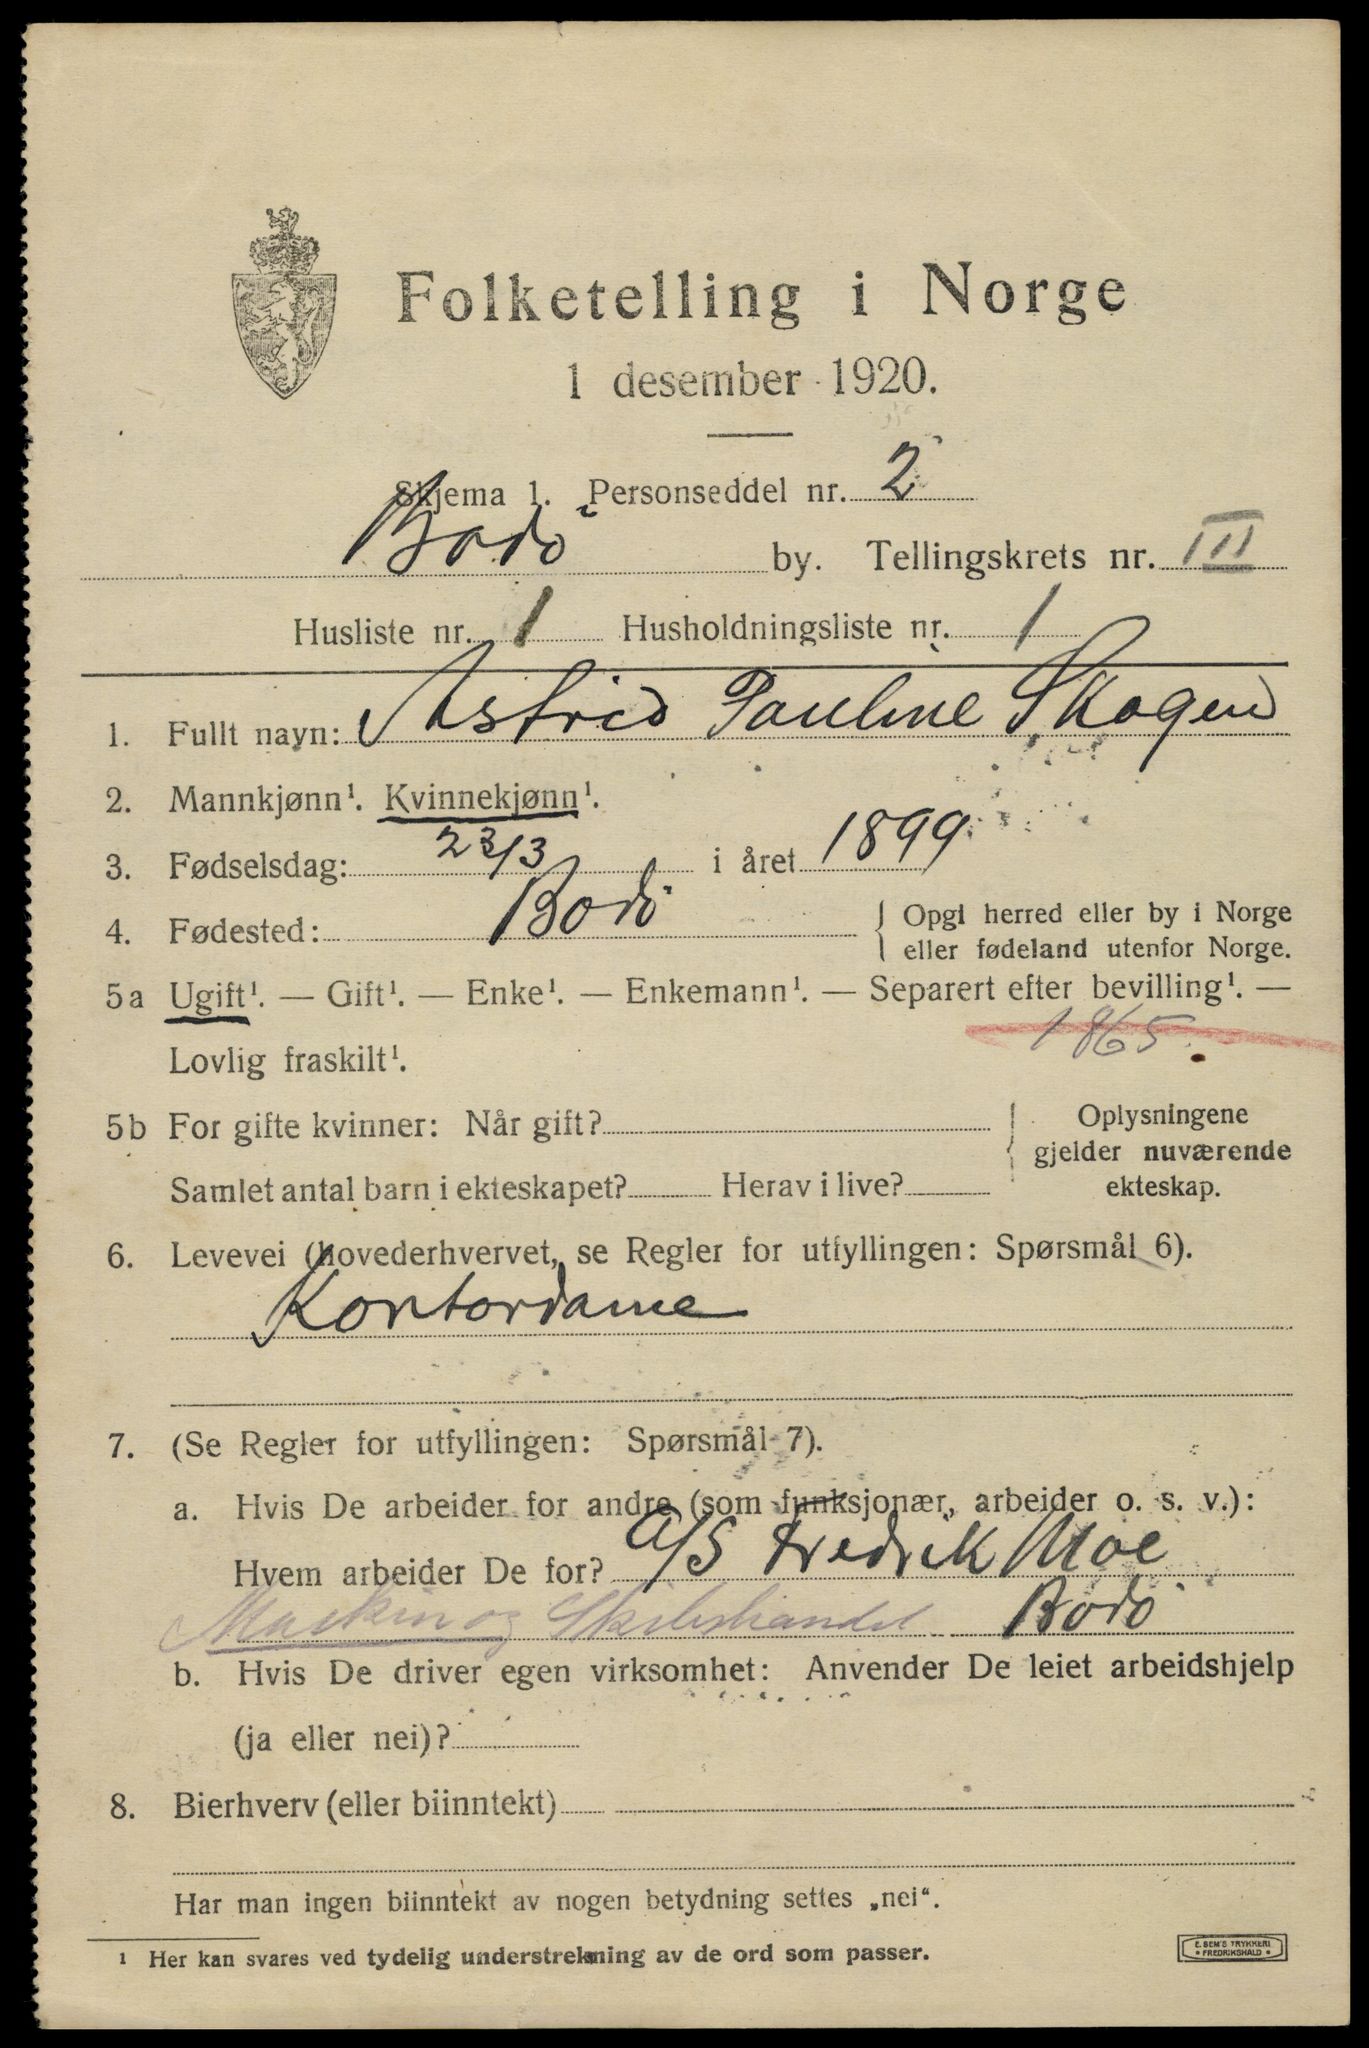 Folketelling i Norge
1 desember 1920.
Skjema 1. Personseddel nr. 2
Bodö by. Tellingskrets nr. III
Husliste nr. 1 Husholdningsliste nr. 1
1. Fullt navn: Astrid Pauline Skagen
2. Mannkjønn¹. Kvinnekjønn¹.
3. Fødselsdag: 23/3 i året 1899
4. Fødested: Bodö { Opgi herred eller by i Norge
eller fødeland utenfor Norge.
5a Ugift¹. — Gift¹. — Enke¹. — Enkemann¹. — Separert efter bevilling¹. —
1865.
Lovlig fraskilt¹.
5b For gifte kvinner: Når gift? { Oplysningene
gjelder nuværende
Samlet antal barn i ekteskapet? Herav i live? ekteskap.
6. Levevei (hovederhvervet, se Regler for utfyllingen: Spørsmål 6).
Kontordame
7. (Se Regler for utfyllingen: Spørsmål 7).
a. Hvis De arbeider for andre (som funksjonær, arbeider o. s. v.):
Hvem arbeider De for? A/S Fredrik Moe
Maskin og Skibshandel Bodö
b. Hvis De driver egen virksomhet: Anvender De leiet arbeidshjelp
(ja eller nei)?
8. Bierhverv (eller biinntekt)
Har man ingen biinntekt av nogen betydning settes „nei“.
¹ Her kan svares ved tydelig understrekning av de ord som passer.
E. SEM'S TRYKKERI
• FREDRIKSHALD •